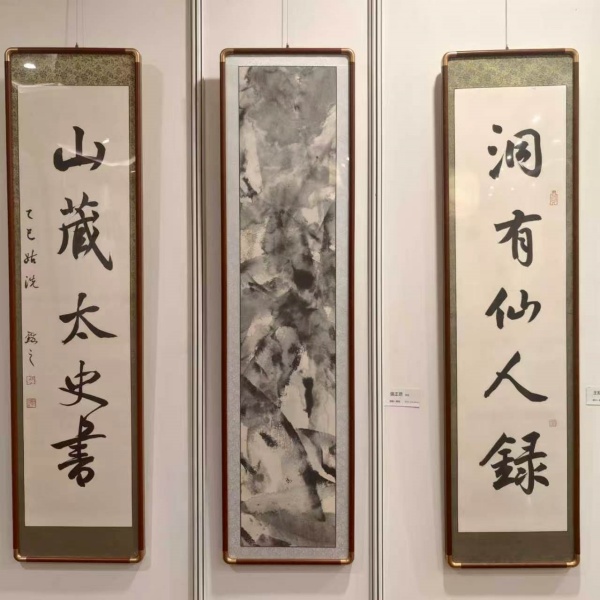 洞有仙人録
山藏太史書
乙巳姑洗